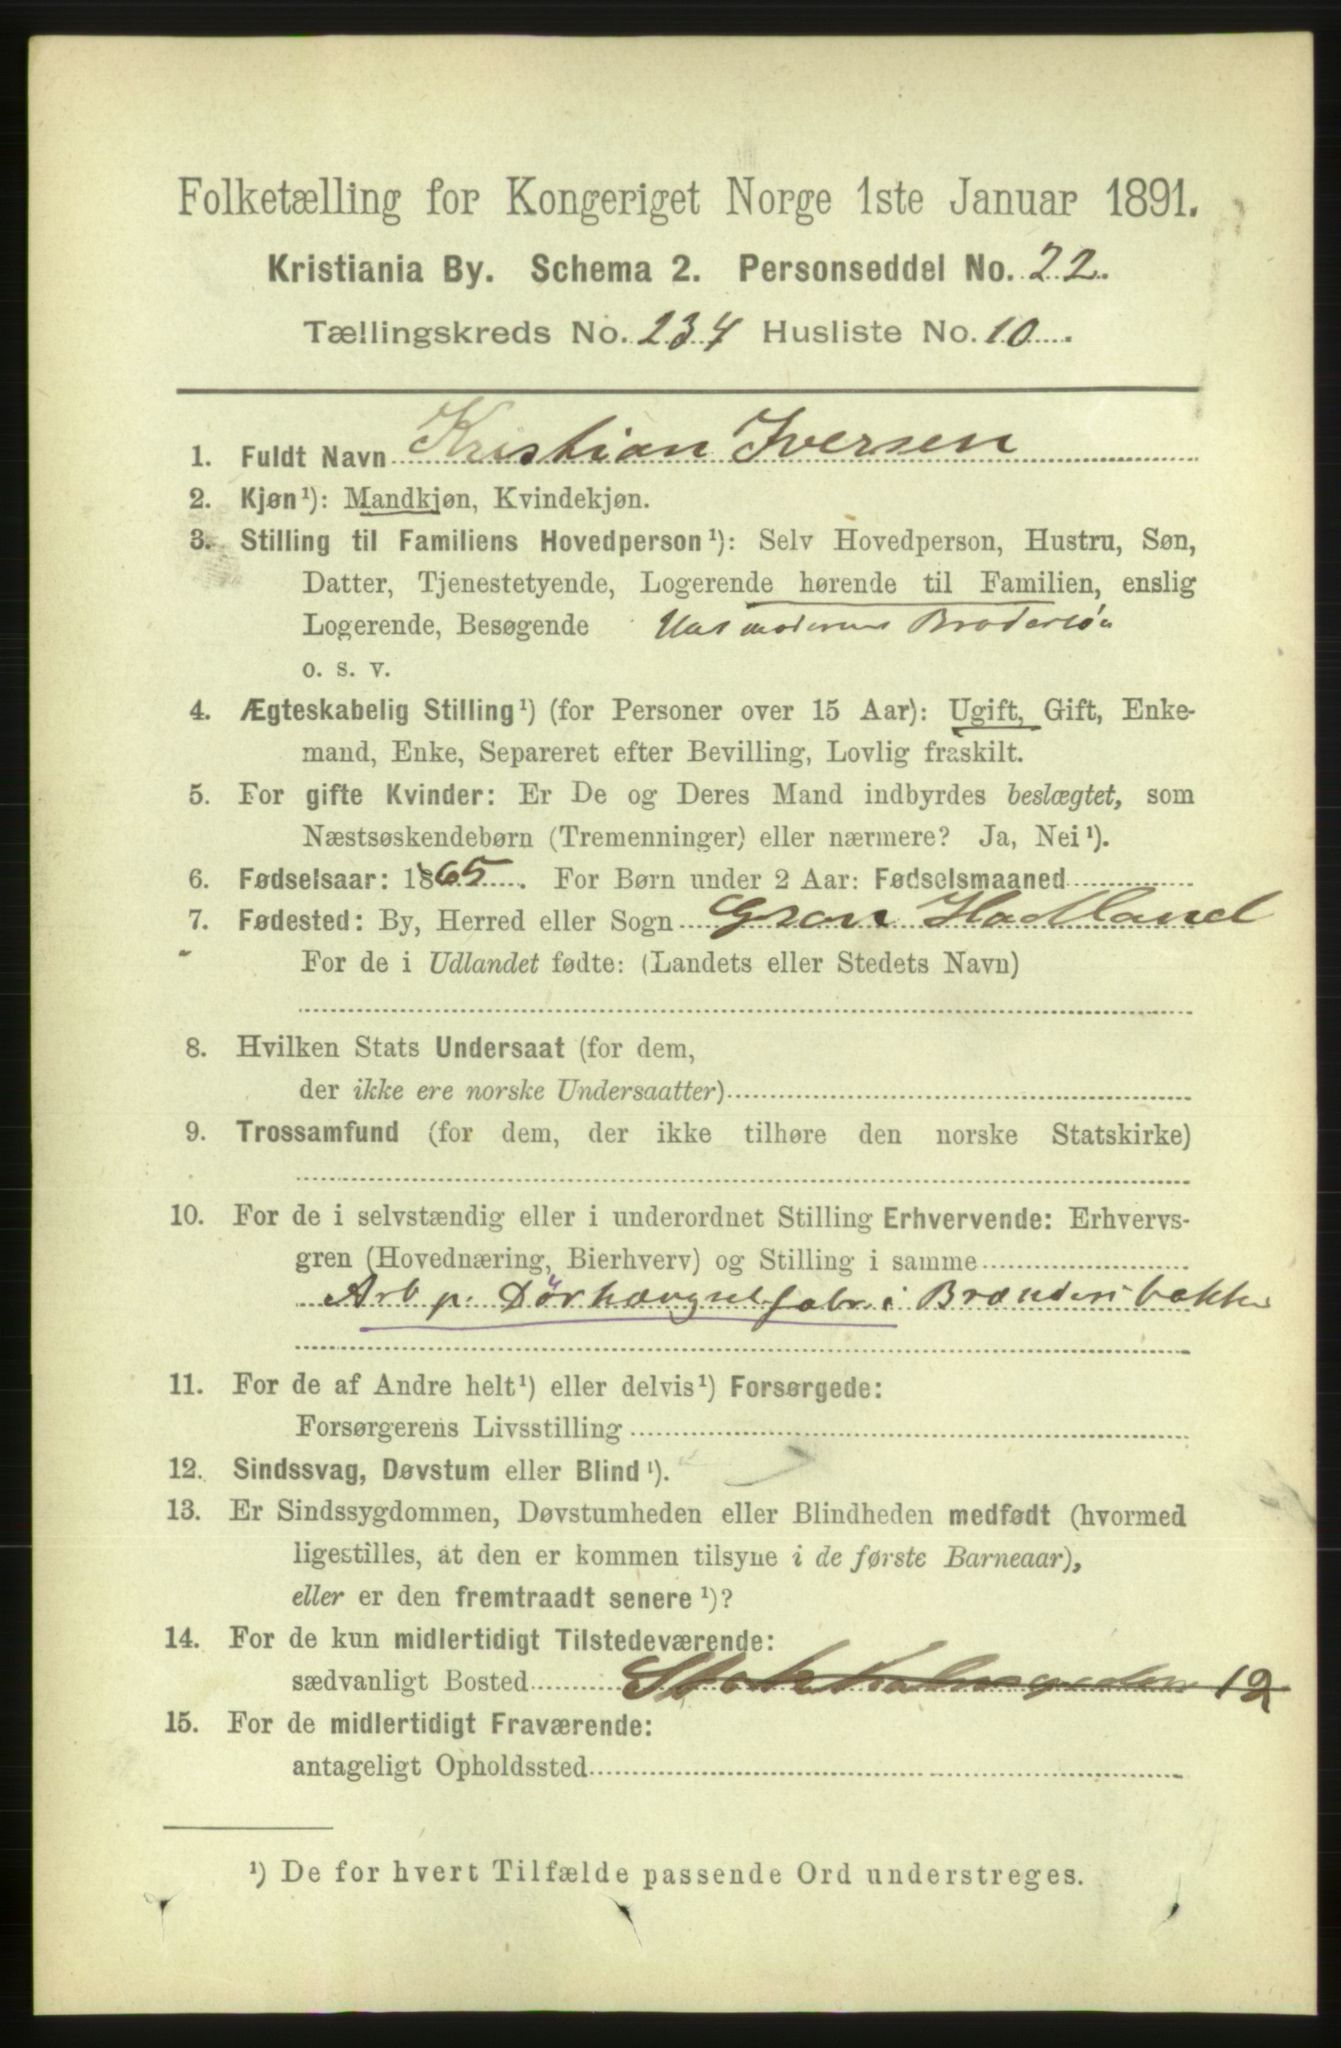 Folketælling for Kongeriget Norge 1ste Januar 1891.
Kristiania By. Schema 2. Personseddel No. 22
Tællingskreds No. 234 Husliste No. 10
1. Fuldt Navn Kristian Iversen
2. Kjøn¹): Mandkjøn, Kvindekjøn.
3. Stilling til Familiens Hovedperson¹): Selv Hovedperson, Hustru, Søn,
Datter, Tjenestetyende, Logerende hørende til Familien, enslig
Logerende, Besøgende Husmoderens Brodersøn
o. s. v.
4. Ægteskabelig Stilling¹) (for Personer over 15 Aar): Ugift, Gift, Enke-
mand, Enke, Separeret efter Bevilling, Lovlig fraskilt.
5. For gifte Kvinder: Er De og Deres Mand indbyrdes beslægtet, som
Næstsøskendebørn (Tremenninger) eller nærmere? Ja, Nei¹).
6. Fødselsaar: 1865. For Børn under 2 Aar: Fødselsmaaned
7. Fødested: By, Herred eller Sogn Gran Hadland
For de i Udlandet fødte: (Landets eller Stedets Navn)
8. Hvilken Stats Undersaat (for dem,
der ikke ere norske Undersaatter)
9. Trossamfund (for dem, der ikke tilhøre den norske Statskirke)
10. For de i selvstændig eller i underordnet Stilling Erhvervende: Erhvervs-
gren (Hovednæring, Bierhverv) og Stilling i samme
Arb p. Dörhængselfabr. i Brænderibakken
11. For de af Andre helt¹) eller delvis¹) Forsørgede:
Forsørgerens Livsstilling
12. Sindssvag, Døvstum eller Blind¹).
13. Er Sindssygdommen, Døvstumheden eller Blindheden medfødt (hvormed
ligestilles, at den er kommen tilsyne i de første Barneaar),
eller er den fremtraadt senere¹)?
14. For de kun midlertidigt Tilstedeværende:
sædvanligt Bosted 12
15. For de midlertidigt Fraværende:
antageligt Opholdssted
¹) De for hvert Tilfælde passende Ord understreges.